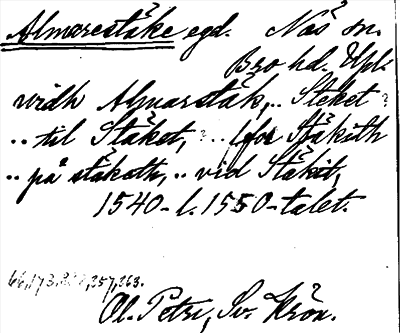 Almarestäke egd. Näs sn.
Bro hd. Upl.
vidh Almarstäk, .. Steket?
.. til Stäket, ? .. for Stäkith
.. på stäketh, .. vid Stäkit,
1540-l. 1550-talet.
66, 173, 257, 263.
Ol. Petri, Sv. Krön.